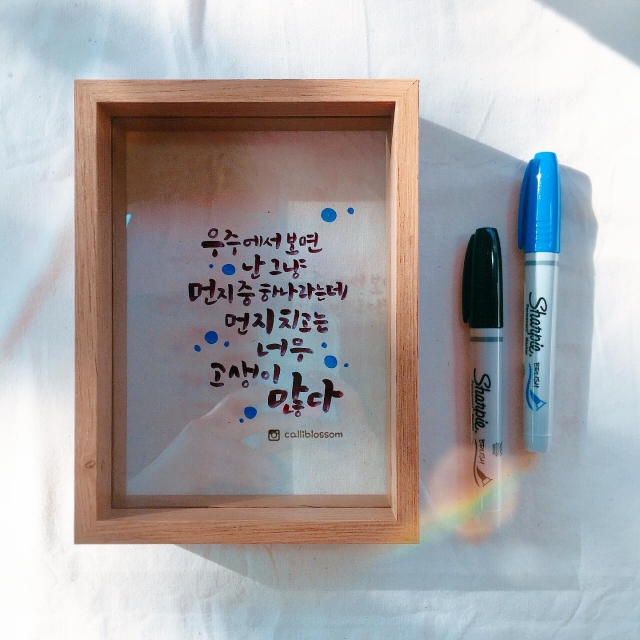 우주에서 보면
난 그냥
먼지 중 하나라는데
먼지 치고는
너무
고생이
많다
calliblossom
Sharpie
BRUSH
Sharpie
BRUSH